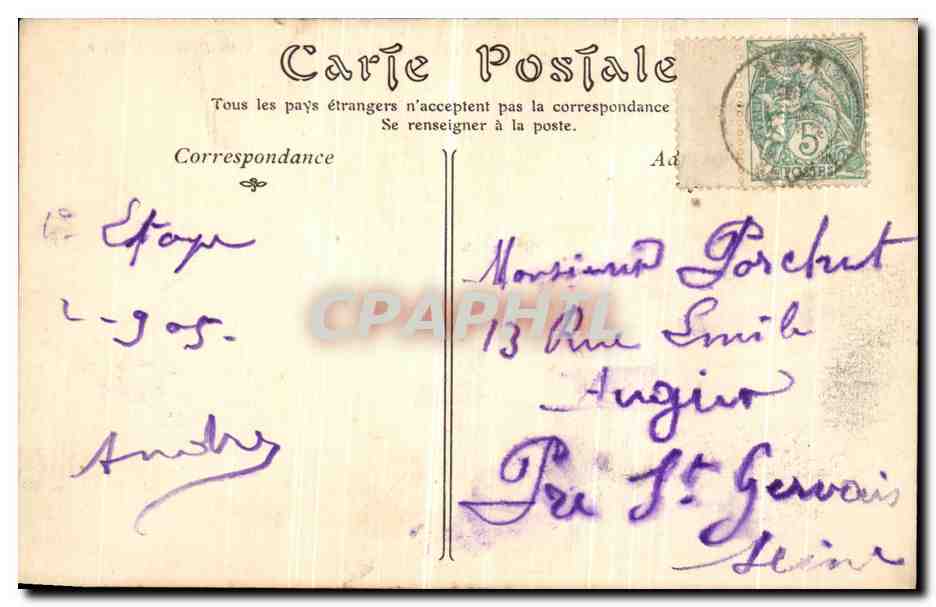 Carte Postale
Tous les pays étrangers n'acceptent pas la correspondance
Se renseigner à la poste.
Correspondance
Ad
5
POSTES
CPAPHIL
Etape
2-905.
André
Monsieur Porchet
13 Rue Emile
Augier
Pré St Gervais
Seine